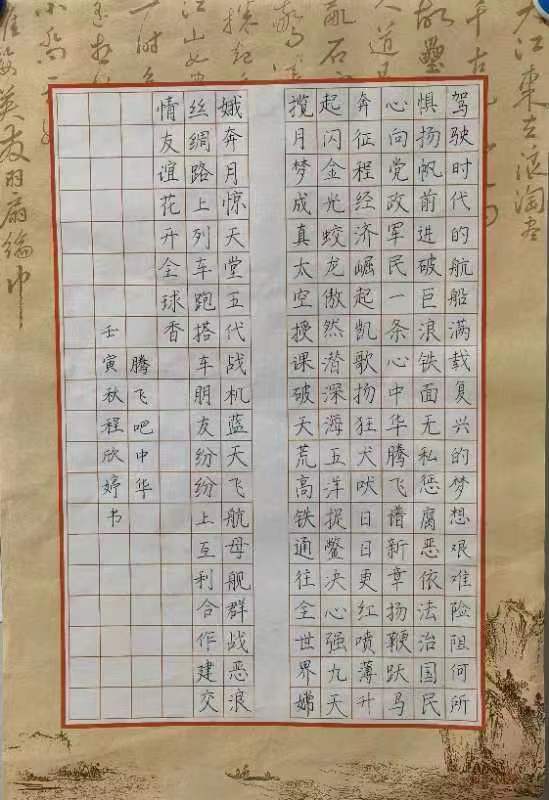 大江東去浪淘盡
千古
故壘
人道是
亂石
江山如
一時多
雄姿英发羽扇綸巾
驾驶时代的航船满载复兴的梦想艰难险阻何所
惧扬帆前进破巨浪铁面无私惩腐恶依法治国民
心向党政军民一条心中华腾飞谱新章扬鞭跃马
奔征程经济崛起凯歌扬狂犬吠日日更红喷薄升
起闪金光蛟龙傲然潜深海五洋捉鳖决心强九天
揽月梦成真太空授课破天荒高铁通往全世界嫦
娥奔月惊天堂五代战机蓝天飞航母舰群战恶浪
丝绸路上列车跑搭车朋友纷纷上互利合作建交
情友谊花开全球香
腾飞吧中华
壬寅秋程欣婷书